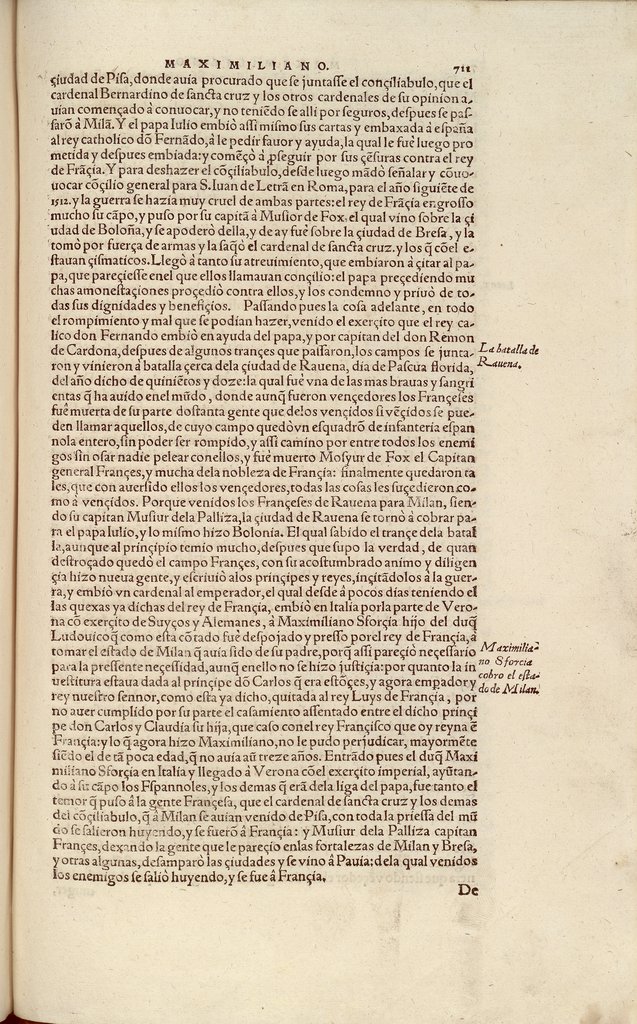 MAXIMILIANO. 711
çiudad de Pisa, donde auia procurado que se juntasse el conçiliabulo, que el
cardenal Bernardino de sancta cruz y los otros cardenales de su opinion a-
uian començado à conuocar, y no teniẽdo se alli por seguros, despues se pas-
sarõ à Milã. Y el papa Iulio embiò assi mismo sus cartas y embaxada à españa
al rey catholico dõ Fernãdo, à le pedir fauor y ayuda, la qual le fuê luego pro
metida y despues embiada: y comẽçò à ꝑseguir por sus çẽsuras contra el rey
de Frãçia. Y para deshazer el cõçiliabulo, desde luego mãdò señalar y cõuo-
uocar cõçilio general para S. Iuan de Letrã en Roma, para el año siguiẽte de
1512. y la guerra se hazia muy cruel de ambas partes: el rey de Frãçia engrosso
mucho su cãpo, y puso por su capitã à Musior de Fox, el qual vino sobre la çi
udad de Boloña, y se apoderò della, y de ay fuê sobre la çiudad de Bresa, y la
tomò por fuerça de armas y la saq̃ò el cardenal de sancta cruz. y los q̃ cõel e-
stauan çismaticos. Llegò à tanto su atreuimiento, que embiaron à çitar al pa-
pa, que pareçiesse enel que ellos llamauan conçilio: el papa preçediendo mu
chas amonestaçiones proçediò contra ellos, y los condemno y priuò de to-
das sus dignidades y benefiçios. Passando pues la cosa adelante, en todo
el rompimiento y mal que se podian hazer, venido el exerçito que el rey ca-
lico don Fernando embiò en ayuda del papa, y por capitan del don Remon
de Cardona, despues de algunos trançes que passaron, los campos se junta-
ron y vinieron à batalla çerca dela çiudad de Rauena, dia de Pascua florida,
del año dicho de quiniẽtos y doze: la qual fuê vna de las mas brauas y sangri
entas q̃ ha auido enel mũdo, donde aunq̃ fueron vençedores los Françeses
fuê muerta de su parte dostanta gente que delos vençidos si vẽçidos se pue-
den llamar aquellos, de cuyo campo quedò vn esquadrõ de infanteria espan
nola entero, sin poder ser rompido, y assi camino por entre todos los enemi
gos sin osar nadie pelear conellos, y fuê muerto Mosyur de Fox el Capitan
general Françes, y mucha dela nobleza de Françia: finalmente quedaron ta
les, que con auer sido ellos los vençedores, todas las cosas les suçedieron co-
mo à vençidos. Porque venidos los Françeses de Rauena para Milan, sien-
do su capitan Musiur dela Palliza, la çiudad de Rauena se tornò à cobrar pa-
ra el papa Iulio, y lo mismo hizo Bolonia. El qual sabido el trançe dela batal
la, aunque al prinçipio temio mucho, despues que supo la verdad, de quan
destroçado quedò el campo Françes, con su acostumbrado animo y diligen
çia hizo nueua gente, y escriuiò alos prinçipes y reyes, inçitãdolos à la guer-
ra, y embiò vn cardenal al emperador, el qual desde à pocos dias teniendo el
las quexas ya dichas del rey de Françia, embiò en Italia por la parte de Vero-
na cõ exerçito de Suyços y Alemanes, à Maximiliano Sforçia hijo del duq̃
Ludouico q̃ como esta cõtado fuê despojado y presso porel rey de Françia, à
tomar el estado de Milan q̃ auia sido de su padre, porq̃ assi pareçiò neçessario
para la pressente neçessidad, aunq̃ enello no se hizo justiçia: por quanto la in
uestitura estaua dada al prinçipe dõ Carlos q̃ era estõçes, y agora empador y
rey nuestro sennor, como esta ya dicho, quitada al rey Luys de Françia, por
no auer cumplido por su parte el casamiento assentado entre el dicho prinçi
pe don Carlos y Claudia su hija, que caso conel rey Françisco que oy reyna ẽ
Françia: y lo q̃ agora hizo Maximiliano, no le pudo perjudicar, mayormẽte
siẽdo el de tã poca edad, q̃ no auia aũ treze años. Entrãdo pues el duq̃ Maxi
miliano Sforçia en Italia y llegado à Verona cõel exerçito imperial, ayũtan-
do à su cãpo los Espannoles, y los demas q̃ erã dela liga del papa, fue tanto el
temor q̃ puso à la gente Françesa, que el cardenal de sancta cruz y los demas
del cõçiliabulo, q̃ à Milan se auian venido de Pisa, con toda la priessa del mũ
do se salieron huyendo, y se fuerõ à Françia: y Musiur dela Palliza capitan
Françes, dexando la gente que le pareçio enlas fortalezas de Milan y Bresa,
y otras algunas, desamparò las çiudades y se vino à Pauia: dela qual venidos
los enemigos se saliò huyendo, y se fue à Françia.
De
La batalla de
Rauena.
Maximilia-
no Sforcia
cobro el esta-
do de Milan.